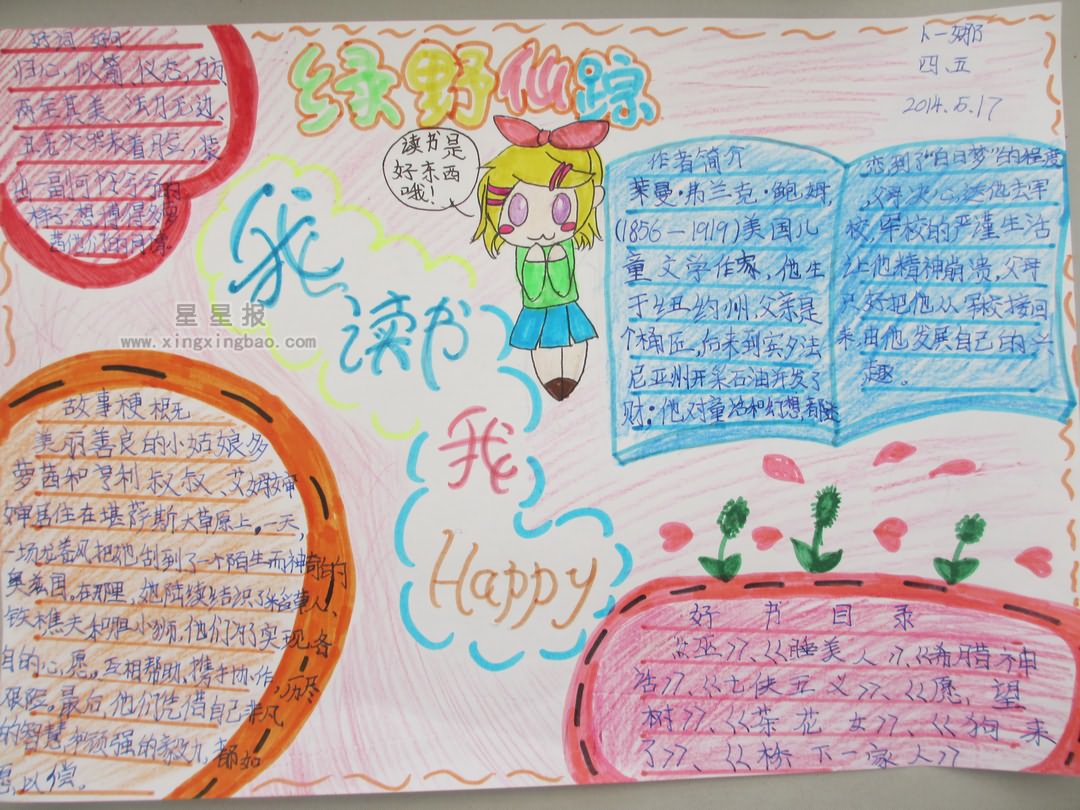 绿野仙踪
卜一娜
四、五
2014.5.17
好词 好句
归心似箭、仪态、万方
两全其美、法力无边、
读书是
好东西
哦!
我
读书
我
Happy
作者简介
莱曼·弗兰克·鲍姆,
(1856—1919)美国儿
童文学作家,他生
于纽约州,父亲是
个桶匠,后来到宾夕法
尼亚州开采石油并发了
财;他对童话和幻想,都迷
恋到了“白日梦”的程度
,父母决心送他去军
校,军校的严谨生活
让他精神崩溃,父母
只好把他从军校接回
来,由他发展自己的兴
趣。
故事梗概
美丽善良的小姑娘多
萝茜和亨利叔叔、艾姆婶
婶居住在堪萨斯大草原上。一天,
一场龙卷风把她刮到了一个陌生而神奇的
奥兹国。在那里,她陆续结识了稻草人、
铁樵夫和胆小狮。他们为了实现各
自的心愿,互相帮助、携手协作,历尽
艰险。最后,他们凭借自己非凡
的智慧和顽强的毅力,都如
愿以偿。
好书目录
《巫》、《睡美人》、《希腊神
话》、《七侠五义》、《愿望
树》、《茶花女》、《狗来
了》、《桥下一家人》
星星报
www.xingxingbao.com